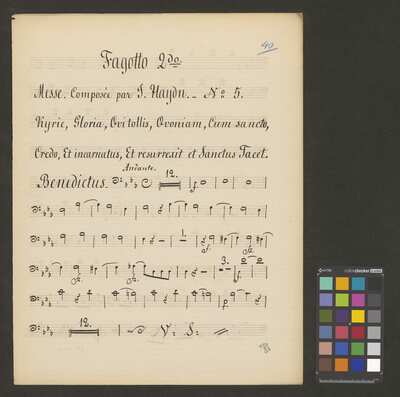 40
Fagotto 2do
Messe. Composée par J. Haydn. _ No 5.
Kyrie, Gloria, Qui tollis, Quoniam, Cum sancto,
Credo, Et incarnatus, Et resurrexit et Sanctus Tacet.
Andante.
Benedictus. 12.
1
3.
12. V: S: